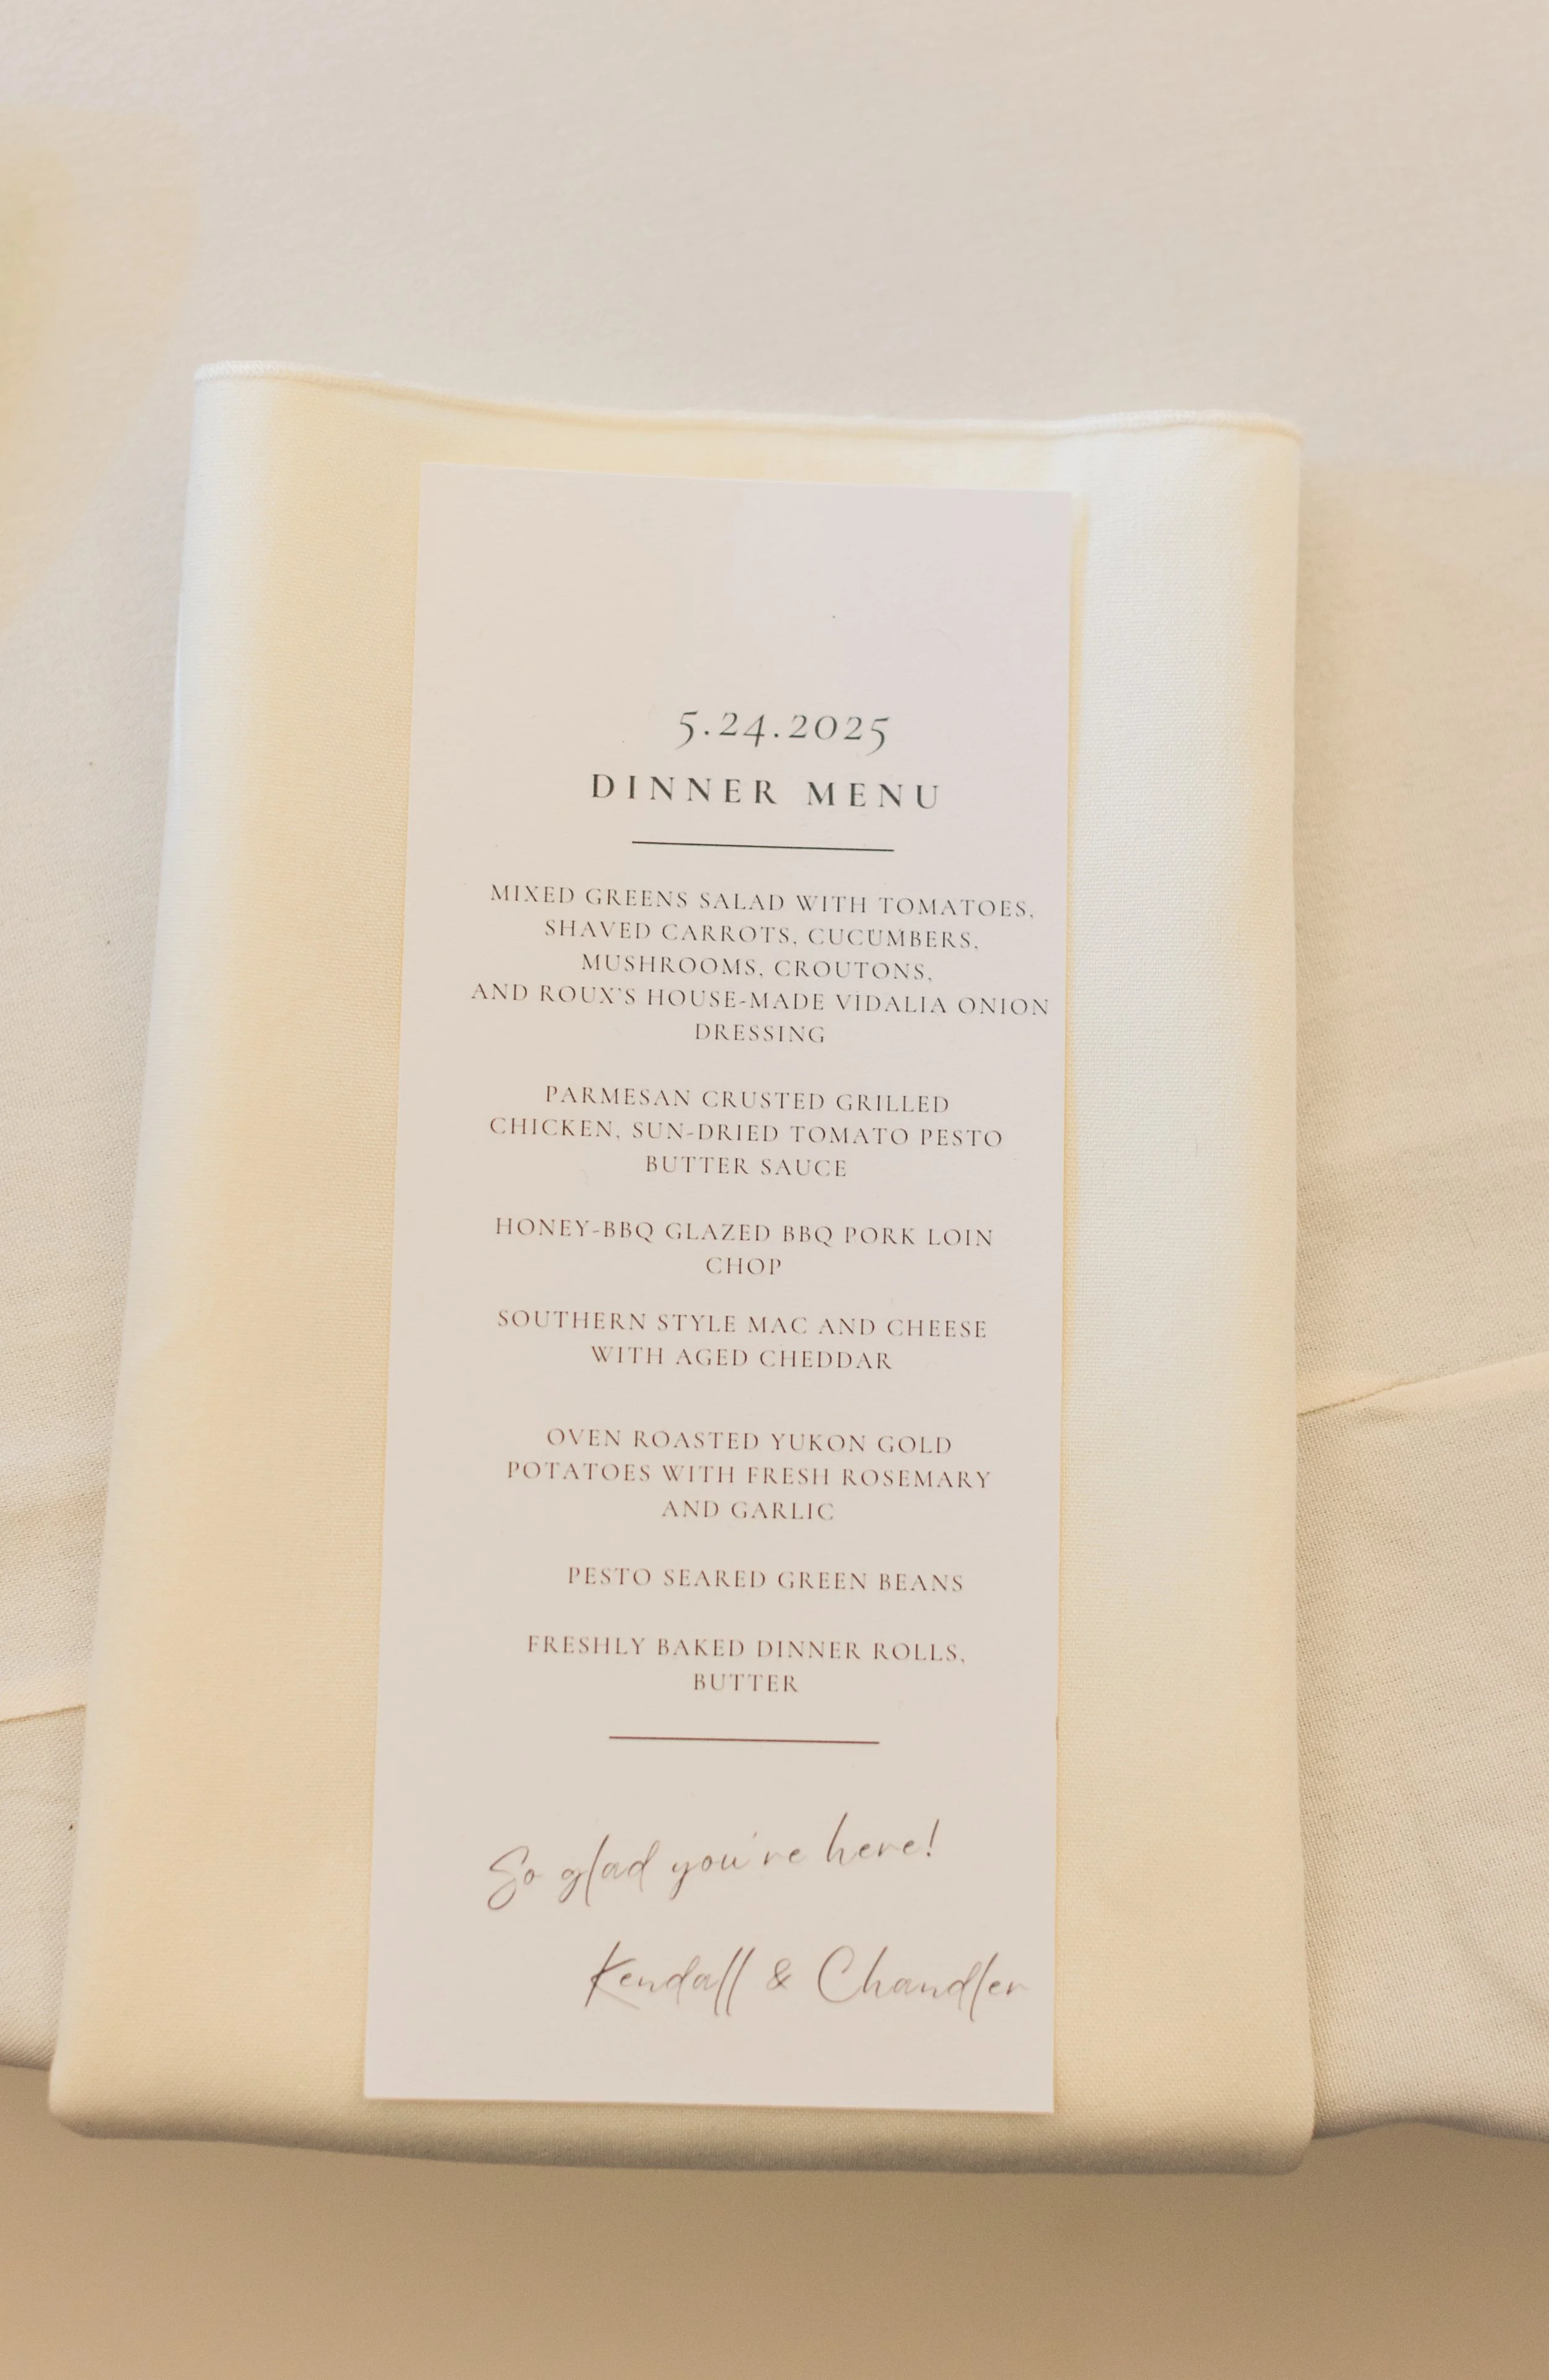 5.24.2025
DINNER MENU
MIXED GREENS SALAD WITH TOMATOES,
SHAVED CARROTS, CUCUMBERS,
MUSHROOMS, CROUTONS,
AND ROUX'S HOUSE-MADE VIDALIA ONION
DRESSING
PARMESAN CRUSTED GRILLED
CHICKEN, SUN-DRIED TOMATO PESTO
BUTTER SAUCE
HONEY-BBQ GLAZED BBQ PORK LOIN
CHOP
SOUTHERN STYLE MAC AND CHEESE
WITH AGED CHEDDAR
OVEN ROASTED YUKON GOLD
POTATOES WITH FRESH ROSEMARY
AND GARLIC
PESTO SEARED GREEN BEANS
FRESHLY BAKED DINNER ROLLS,
BUTTER
So glad you're here!
Kendall & Chandler